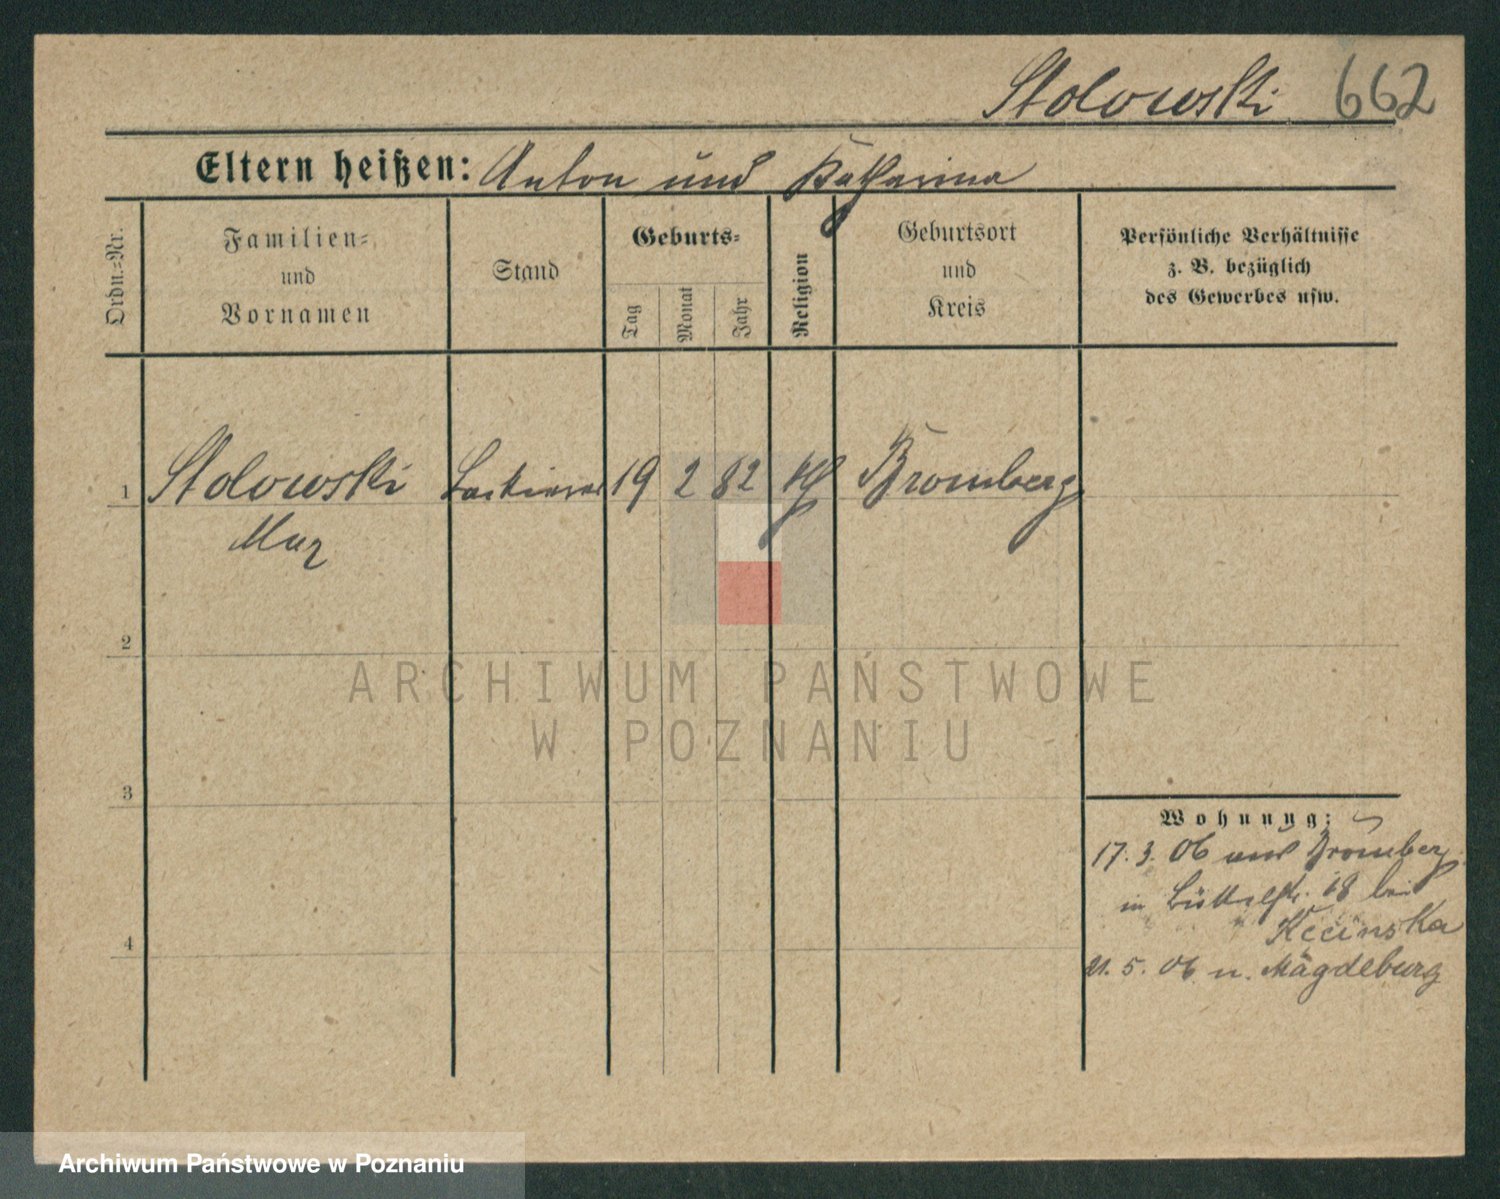 Stolowski 662
Eltern heißen: Anton und Katharina
Ordn.=Nr.
Familien=
und
Vornamen
Stand
Geburts=
Tag
Monat
Jahr
Religion
Geburtsort
und
Kreis
Persönliche Verhältnisse
z. B. bezüglich
des Gewerbes usw.
1 Stolowski Lackierer 19 2 82 kth Bromberg
Max
2
ARCHIWUM PAŃSTWOWE
W POZNANIU
3
Wohnung:
17. 3. 06 aus Bromberg
in 18 bei
4
21. 5. 06 n. Magdeburg
Archiwum Państwowe w Poznaniu